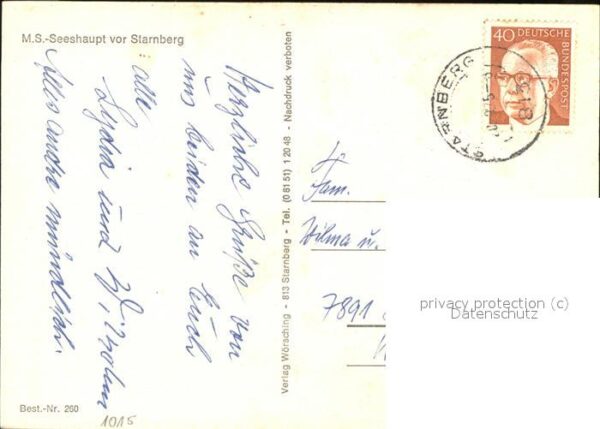 M.S.-Seeshaupt vor Starnberg
Herzliche Grüße von
uns beiden an Euch
alle
Lydia und Wilhelm
Alles andre mündlich.
Best.-Nr. 260
1015
Verlag Wörsching - 813 Starnberg - Tel. (0 81 51) 1 20 48 - Nachdruck verboten
40
DEUTSCHE
BUNDESPOST
STARNBERG
813
Fam.
Wilma u.
7891
privacy protection (c)
Datenschutz